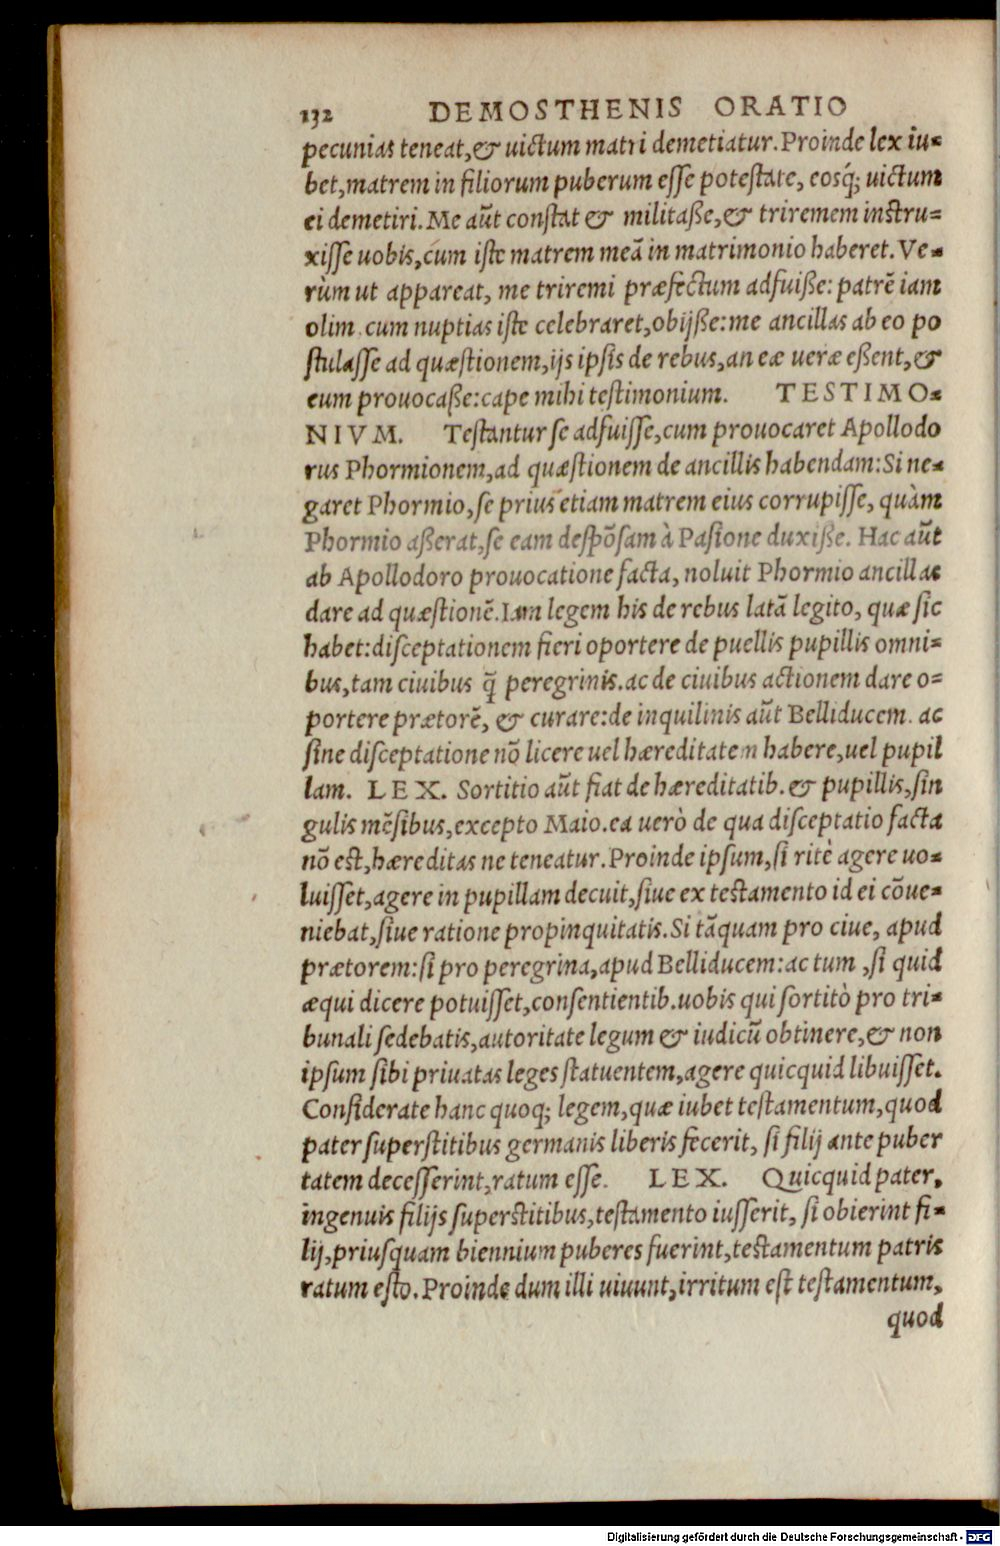 132 DEMOSTHENIS ORATIO
pecunias teneat,& uictum matri demetiatur.Proinde lex iu-
bet,matrem in filiorum puberum esse potestate, eosq́; uictum
ei demetiri.Me aũt constat & militaße,& triremem instru-
xisse uobis,cum iste matrem meã in matrimonio haberet.Ve-
rùm ut appareat, me triremi præfectum adfuiße: patrẽ iam
olim cum nuptias iste celebraret,obijße:me ancillas ab eo po
stulasse ad quæstionem,ijs ipsis de rebus,an eæ ueræ eßent,&
eum prouocaße:cape mihi testimonium. TESTIMO-
NIVM. Testantur se adfuisse,cum prouocaret Apollodo
rus Phormionem,ad quæstionem de ancillis habendam:Si ne-
garet Phormio,se prius etiam matrem eius corrupisse, quàm
Phormio aßerat,se eam despõsam à Pasione duxiße. Hac aũt
ab Apollodoro prouocatione facta, noluit Phormio ancillas
dare ad quæstionẽ.Iam legem his de rebus latã legito, quæ sic
habet:disceptationem fieri oportere de puellis pupillis omni-
bus,tam ciuibus q̃ peregrinis.ac de ciuibus actionem dare o-
portere prætorẽ, & curare:de inquilinis aũt Belliducem. ac
sine disceptatione nõ licere uel hæreditatem habere,uel pupil
lam. LEX. Sortitio aũt fiat de hæreditatib.& pupillis,sin
gulis mẽsibus,excepto Maio.ea uerò de qua disceptatio facta
nõ est,hæreditas ne teneatur.Proinde ipsum,si ritè agere uo-
luisset,agere in pupillam decuit,siue ex testamento id ei cõue-
niebat,siue ratione propinquitatis.Si tãquam pro ciue, apud
prætorem:si pro peregrina,apud Belliducem:ac tum ,si quid
æqui dicere potuisset,consentientib.uobis qui sortitò pro tri-
bunali sedebatis,autoritate legum & iudicũ obtinere,& non
ipsum sibi priuatas leges statuentem,agere quicquid libuisset.
Considerate hanc quoq; legem,quæ iubet testamentum,quod
pater superstitibus germanis liberis fecerit, si filij ante puber
tatem decesserint,ratum esse. LEX. Quicquid pater,
ingenuis filijs superstitibus,testamento iusserit, si obierint fi-
lij,priusquam biennium puberes fuerint,testamentum patris
ratum esto.Proinde dum illi uiuunt,irritum est testamentum,
quod
Digitalisierung gefördert durch die Deutsche Forschungsgemeinschaft - DFG